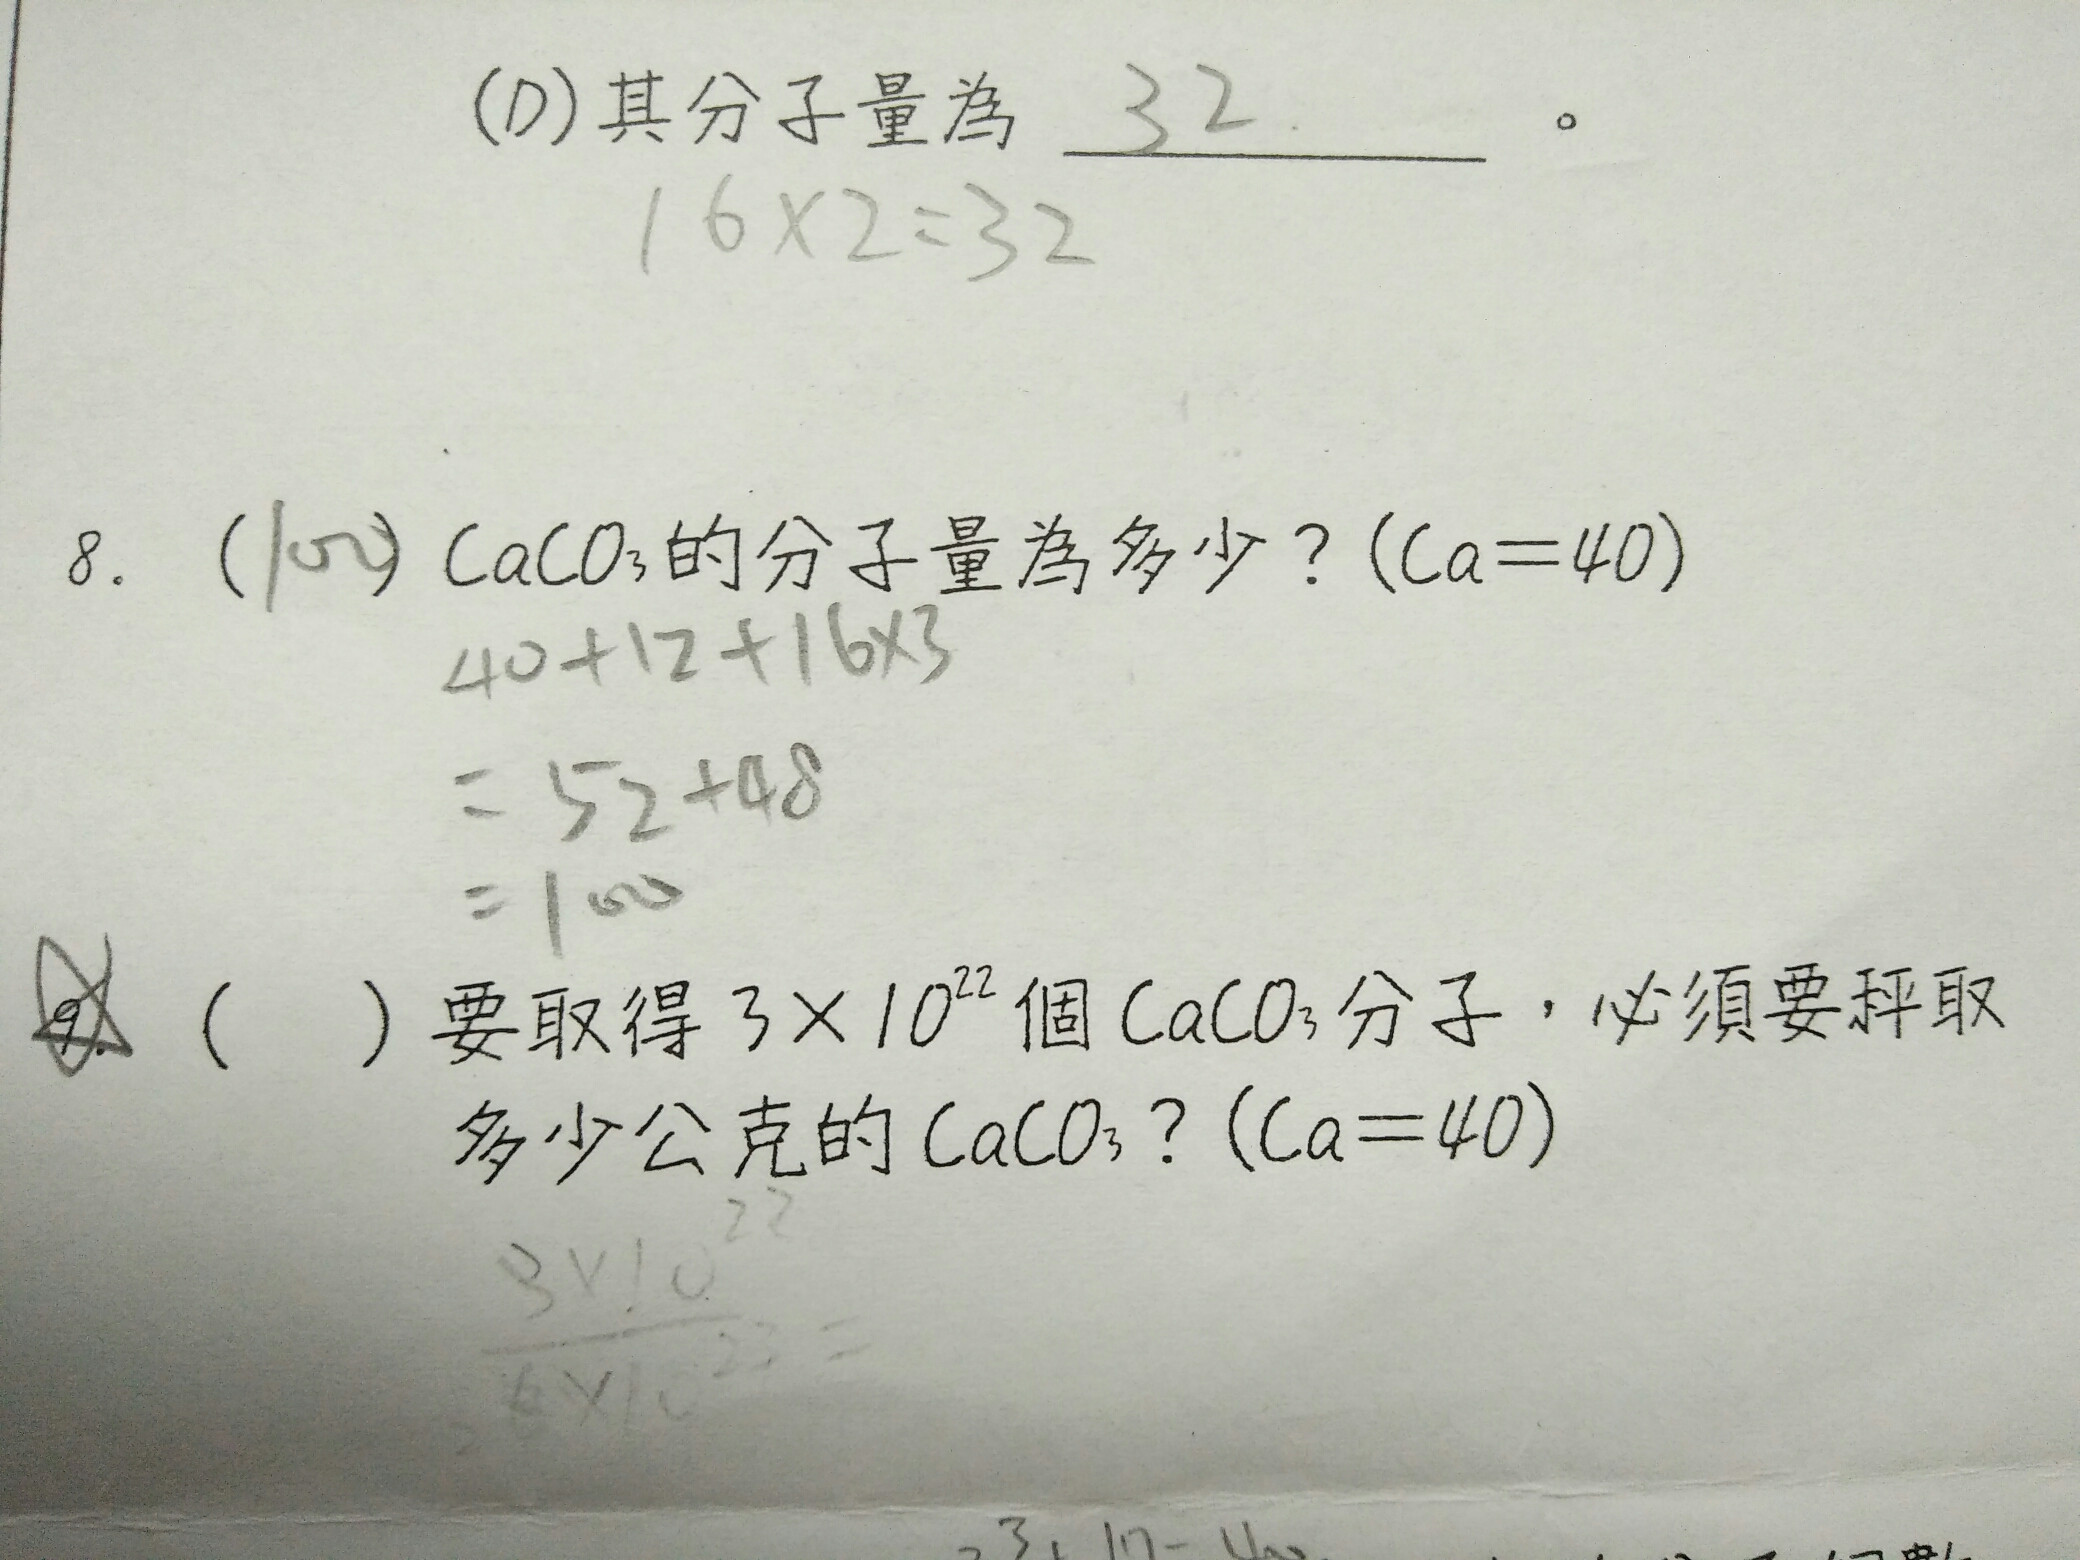 (D)其分子量為 32 。
16×2=32
8. (100) CaCO₃的分子量為多少?(Ca=40)
40+12+16×3
=52+48
=100
9. ( ) 要取得3×10²²個CaCO₃分子,必須要秤取
多少公克的CaCO₃?(Ca=40)
3×10²²
6×10²³ =